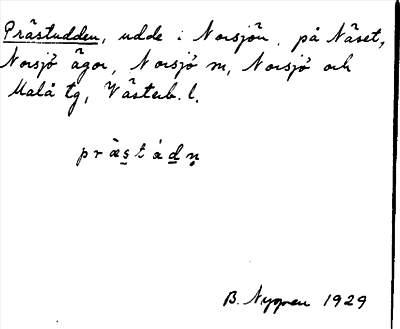 Prästudden, udde i Norsjön, på Näset,
Norsjö ägor, Norsjö sn, Norsjö och
Malå tg, Västerb. l.
præ̀s̲tád̲n̥
B. Nygren 1929